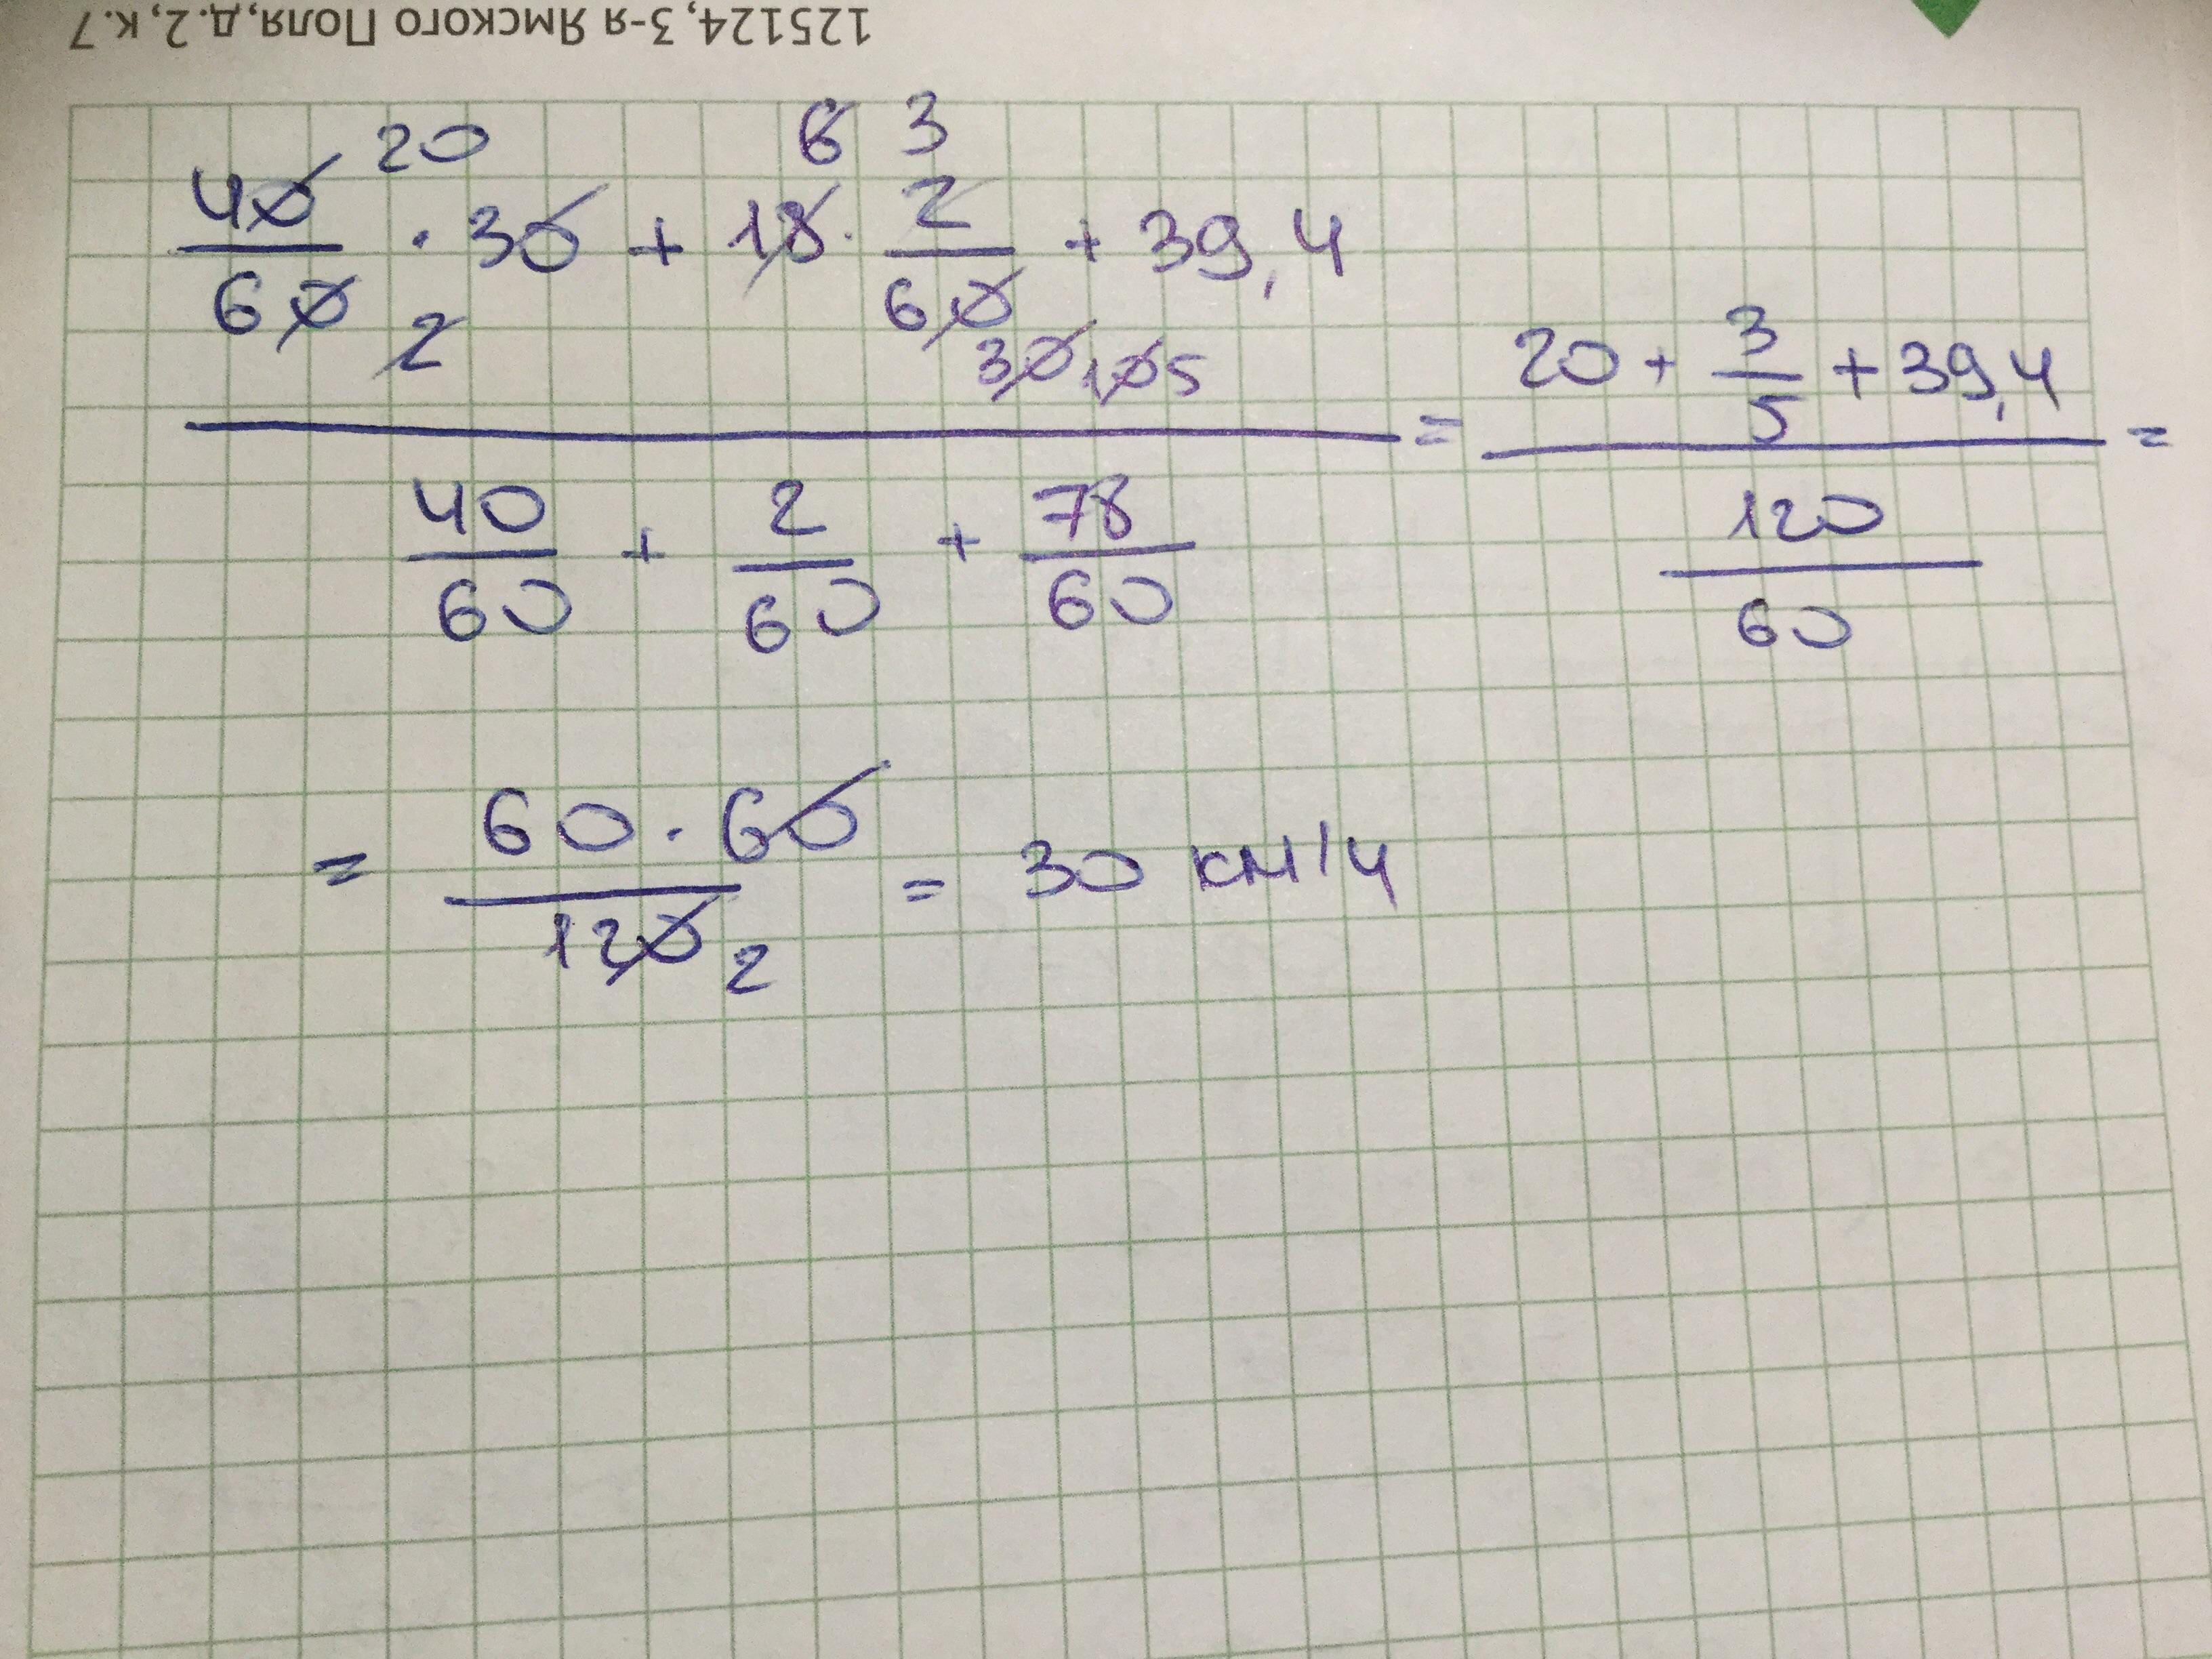 125124, 3-я Ямского Поля, д.2, к.7
40/60 20 2 · 30 + 18 6 3 · 2/60 30 10 5 + 39,4
40/60 + 2/60 + 78/60 = (20 + 3/5 + 39,4) / (120/60) =
= 60 · 60 / 120 2 = 30 км/ч